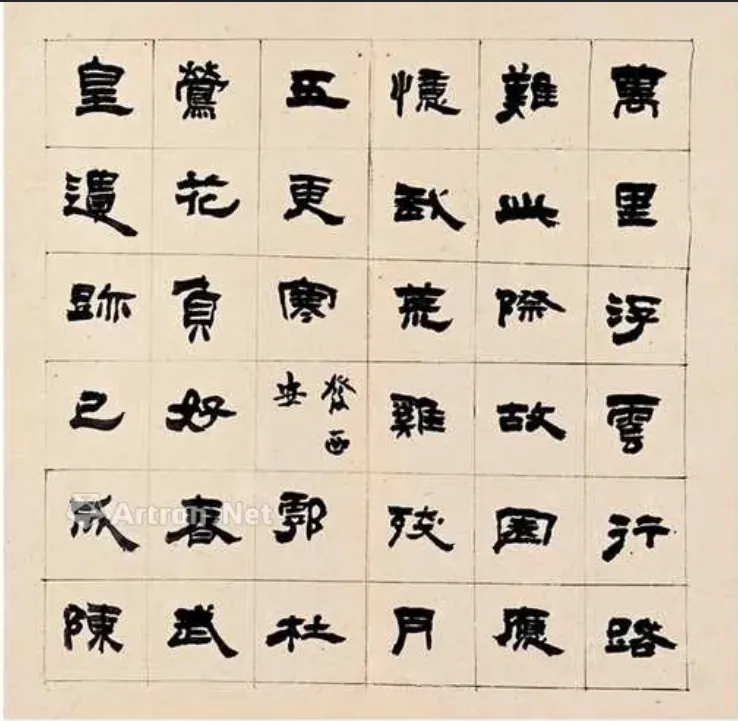 萬里浮雲行路
難此際故園應
憶我荒雞殘月
五更寒
發西
安
鄠杜
鶯花負好春武
皇遺跡已成陳
Artron.Net